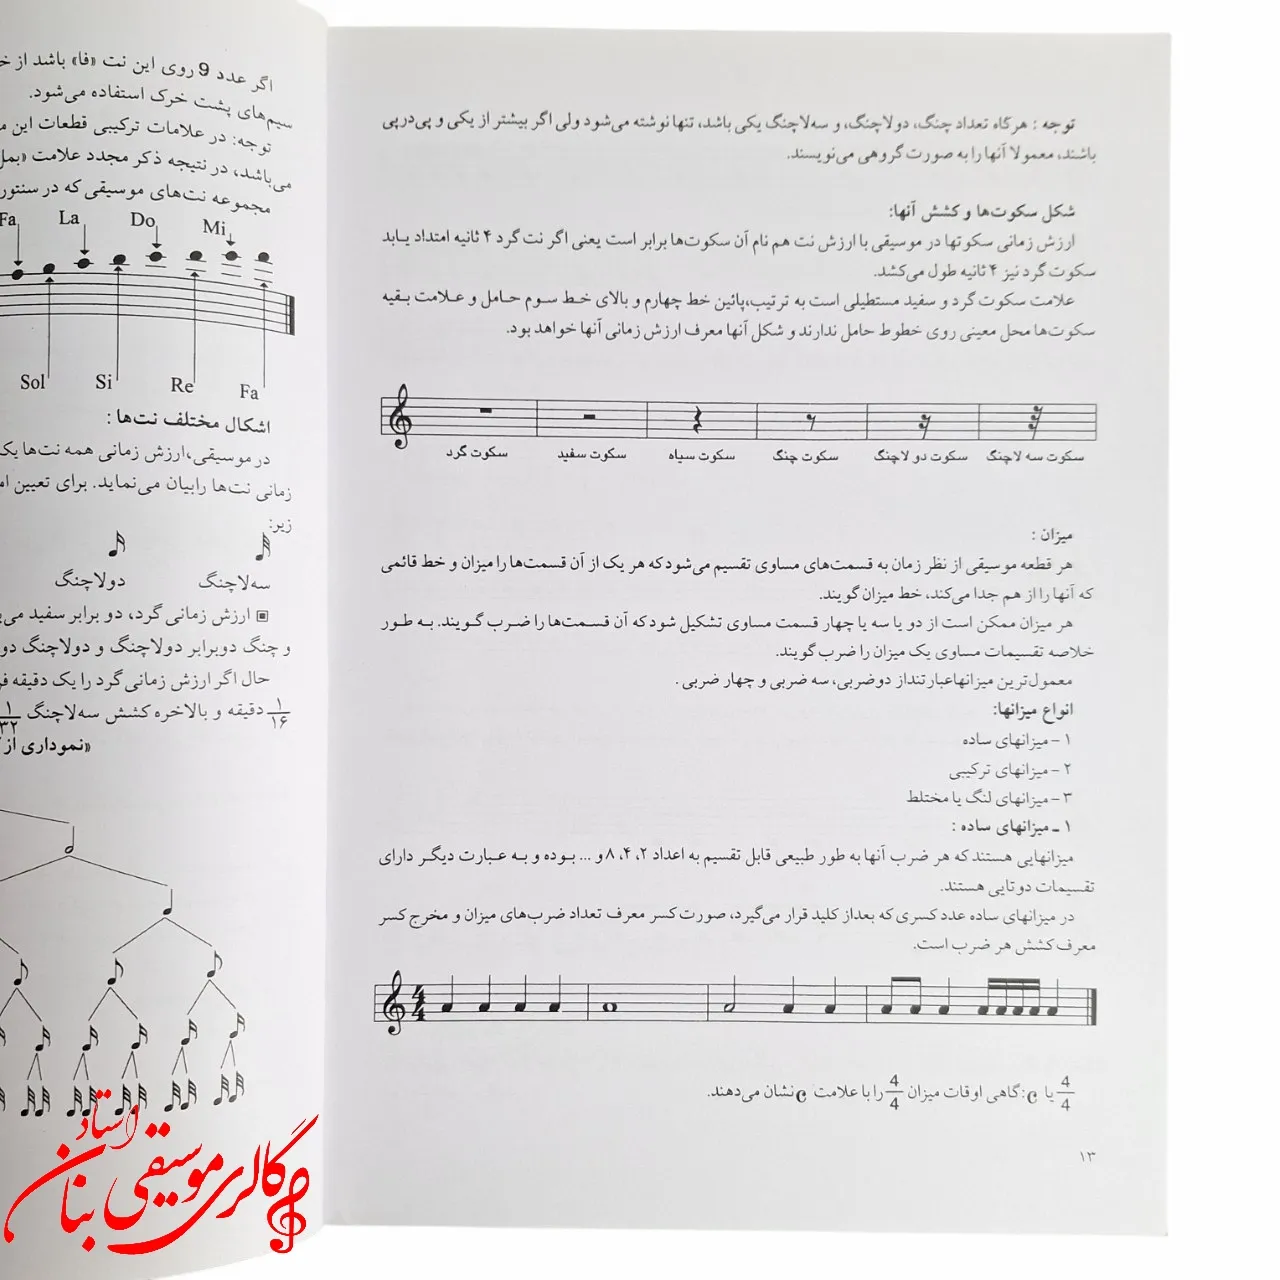 اگر عدد 9 روی این نت «فا» باشد از
سیم‌های پشت خرک استفاده می‌شود.
توجه: در علامات ترکیبی قطعات این
می‌باشد، در نتیجه ذکر مجدد علامت «بمل
مجموعه نت‌های موسیقی که در سنتور
Fa La Do Mi
Sol Si Re Fa
اشکال مختلف نت‌ها :
در موسیقی،ارزش زمانی همه نت‌ها یک
زمانی نت‌ها رابیان می‌نماید. برای تعیین
زیر:
سه‌لاچنگ دولاچنگ
ارزش زمانی گرد، دو برابر سفید
و چنگ دوبرابر دولاچنگ و دولاچنگ
حال اگر ارزش زمانی‌گرد را یک دقیقه
۱/۱۶ دقیقه و بالاخره کشش سه‌لاچنگ ۱/۳۲
«نموداری از
توجه : هرگاه تعداد چنگ، دولاچنگ، و سه‌لاچنگ یکی باشد، تنها نوشته می‌شود ولی اگر بیشتر از یکی و پی‌درپی
باشند، معمولا آنها را به صورت گروهی می‌نویسند.
شکل سکوت‌ها و کشش آنها:
ارزش زمانی سکوتها در موسیقی با ارزش نت هم نام آن سکوت‌ها برابر است یعنی اگر نت گرد ۴ ثانیه امتداد یابد
سکوت گرد نیز ۴ ثانیه طول می‌کشد.
علامت سکوت گرد و سفید مستطیلی است به ترتیب،پائین خط چهارم و بالای خط سوم حامل و علامت بقیه
سکوت‌ها محل معینی روی خطوط حامل ندارند و شکل آنها معرف ارزش زمانی آنها خواهد بود.
سکوت گرد سکوت سفید سکوت سیاه سکوت چنگ سکوت دو لاچنگ سکوت سه لاچنگ
میزان :
هر قطعه موسیقی از نظر زمان به قسمت‌های مساوی تقسیم می‌شود که هر یک از آن قسمت‌ها را میزان و خط قائمی
که آنها را از هم جدا می‌کند، خط میزان گویند.
هر میزان ممکن است از دو یا سه یا چهار قسمت مساوی تشکیل شود که آن قسمت‌ها را ضرب گویند. به طور
خلاصه تقسیمات مساوی یک میزان را ضرب گویند.
معمول‌ترین میزانهاعبارتنداز دوضربی، سه ضربی و چهار ضربی .
انواع میزانها:
۱ – میزانهای ساده
۲ – میزانهای ترکیبی
۳ – میزانهای لنگ یا مختلط
۱ ـ میزانهای ساده :
میزانهایی هستند که هر ضرب آنها به طور طبیعی قابل تقسیم به اعداد ۲، ۴، ۸ و ... بوده و به عبارت دیگر دارای
تقسیمات دوتایی هستند.
در میزانهای ساده عدد کسری که بعداز کلید قرار می‌گیرد، صورت کسر معرف تعداد ضرب‌های میزان و مخرج کسر
معرف کشش هر ضرب است.
4
4
4/4 یا C: گاهی اوقات میزان 4/4 را با علامت C نشان می‌دهند.
۱۳
گالری موسیقی استاد بنان